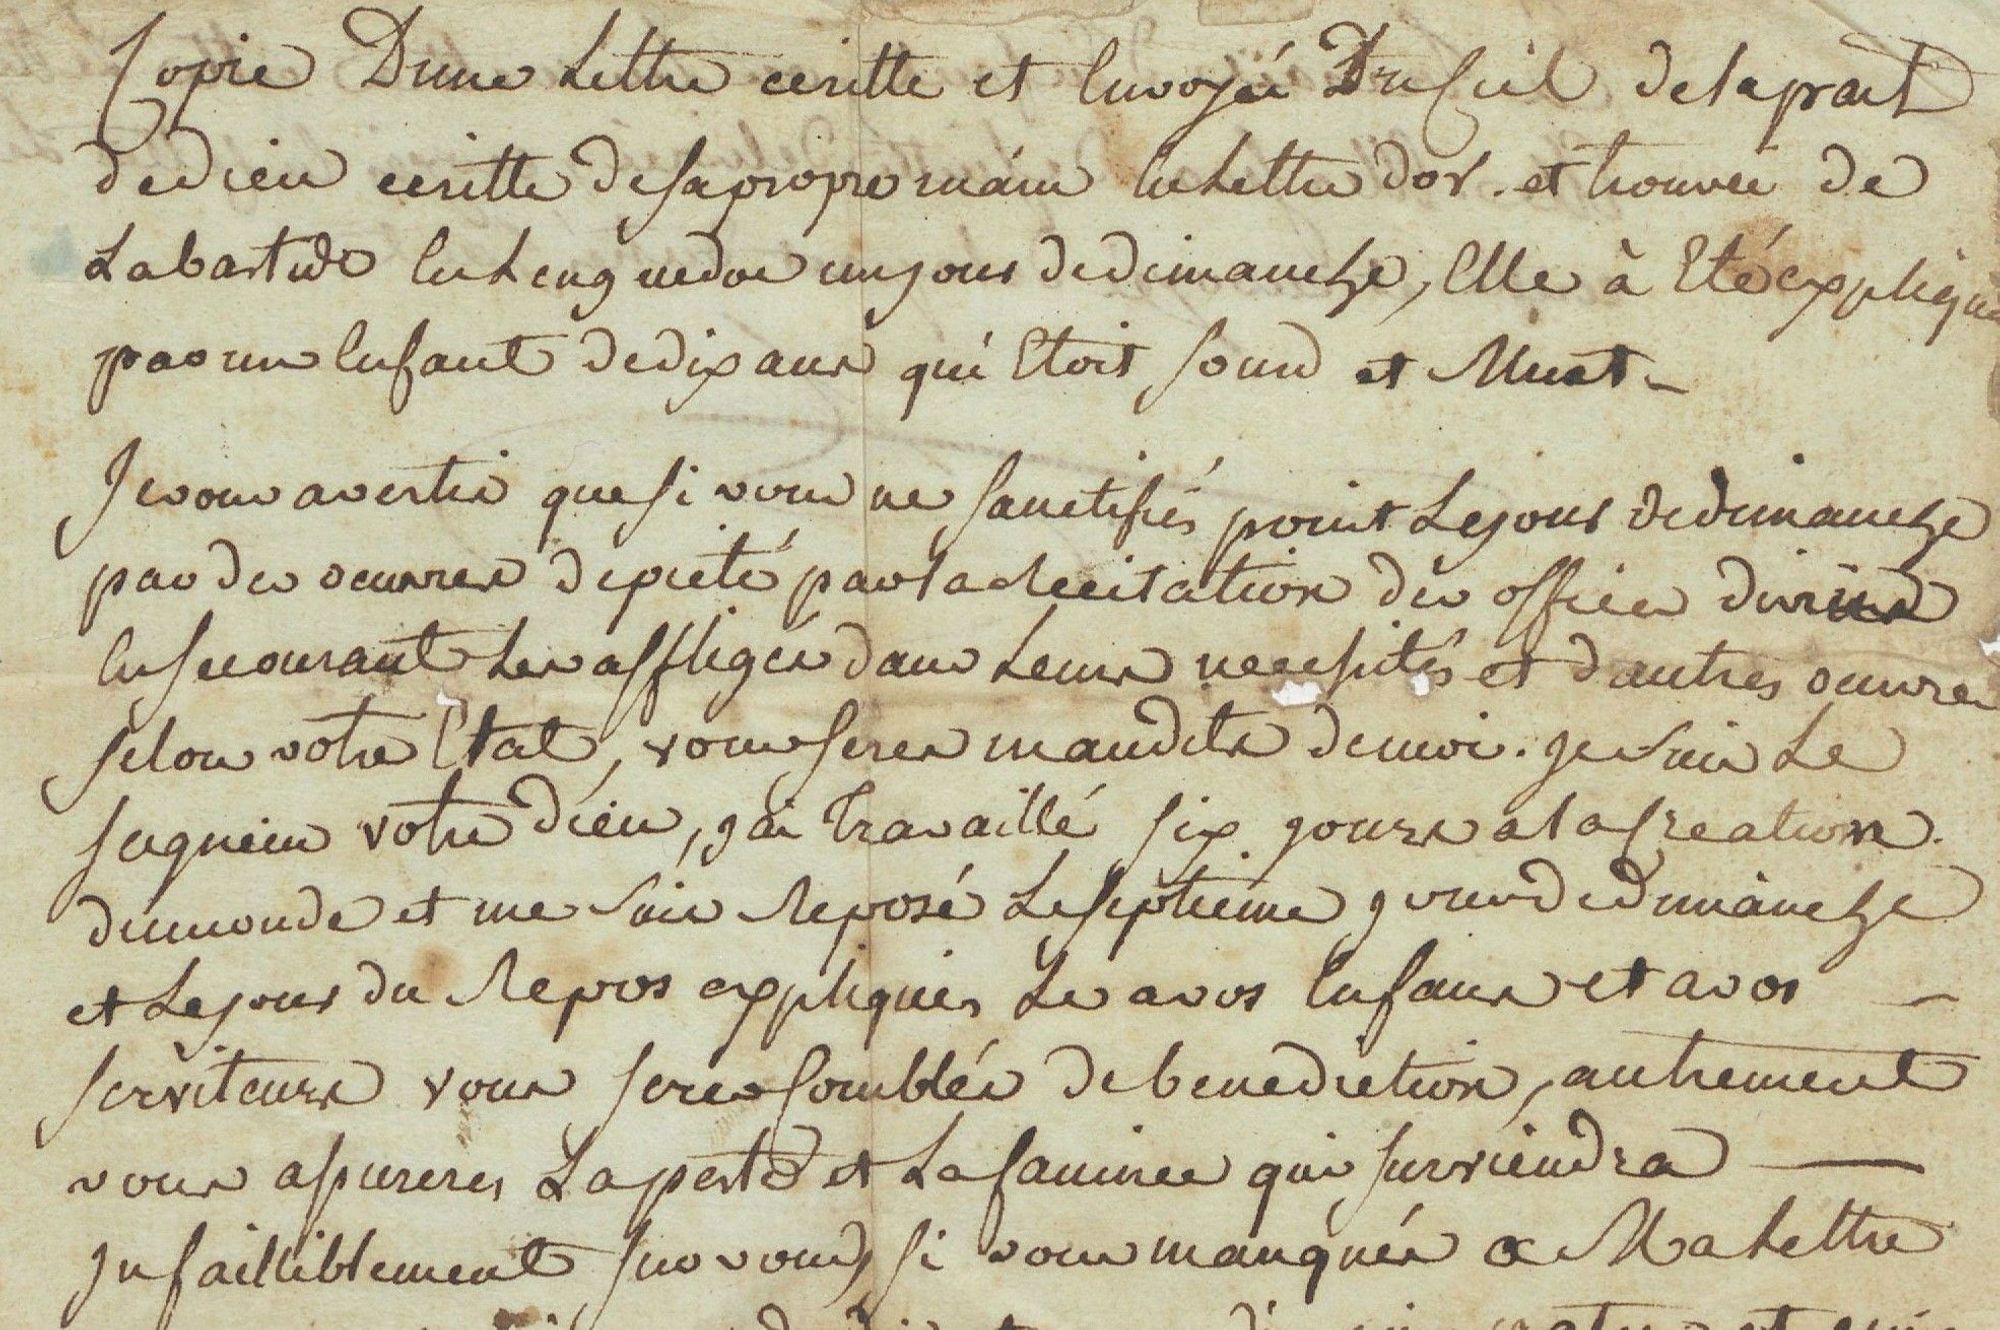 Copie Dune Lettre ecritte et Envoyéé Du Ciel de la part
de dieu ecritte de sa propre main En Lettre dor. et trouvée de
Labastide En Lenguedoc un jour de dimanche, Elle à Eté expliqué
par un Enfant de dix ans qui Etoit sourd et Muet
Je vous avertis que si vous ne sanctifiés point Le jour de dimanche
par des oeuvres de pieté par la Recitation des offices divins
En secourant Les affligés dans Leurs necessités et dautres oeuvres
selon votre Etat, vous seres maudits de moi. je suis Le
seigneur votre dieu, jai Travaillé six jours a la Creation.
du monde et me suis Reposé Le septieme jour de dimanche
et Le jour du Repos expliqués Le a vos Enfans et a vos
serviteurs vous seres Comblés de benediction, autrement
vous a La peste et La famine qui surviendra
Infailliblement sur vous, si vous manqués a Ma Lettre